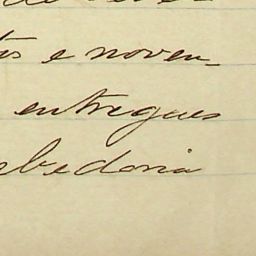 tos e noven-
entregues
bedoria